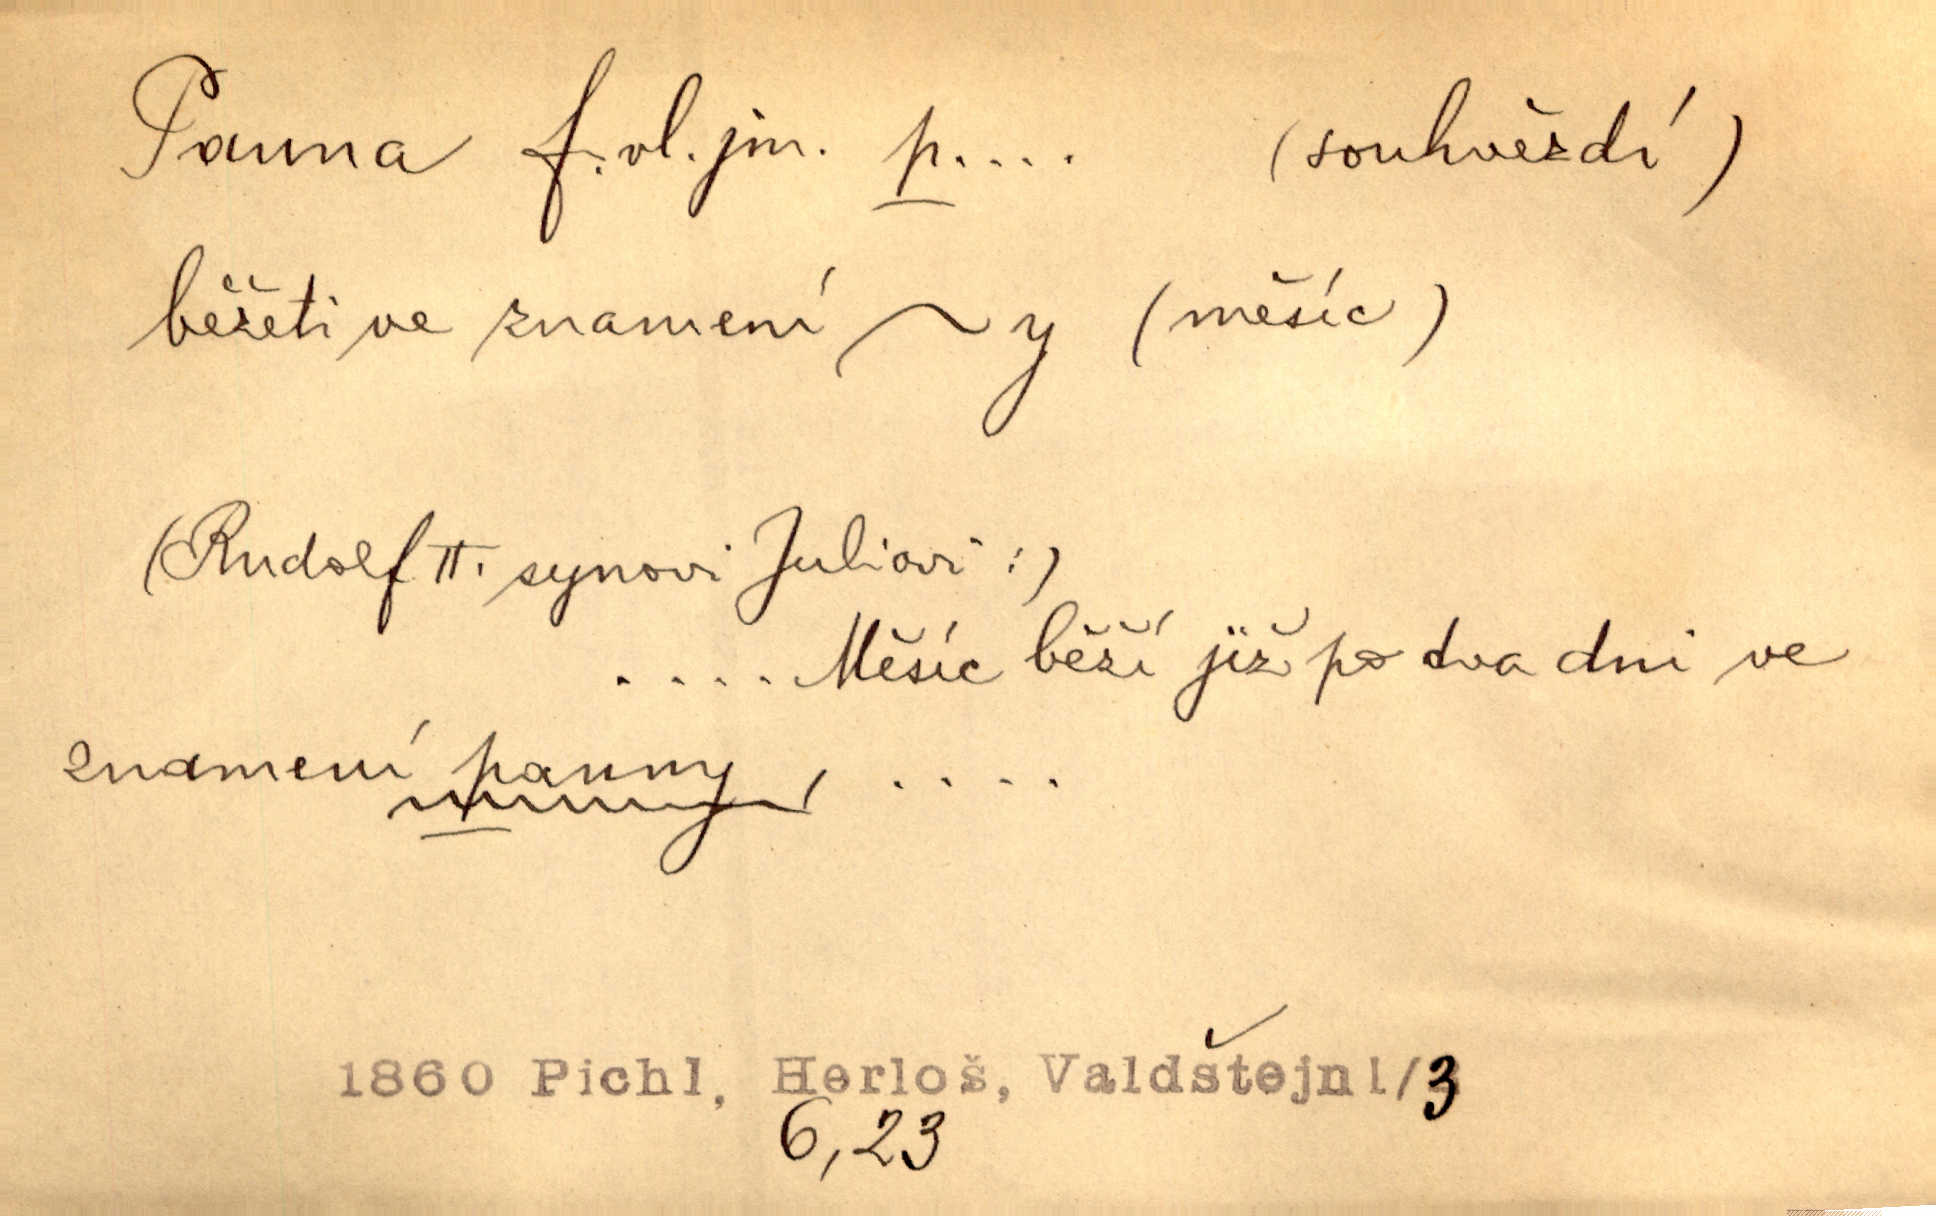 Panna f. vl. jm. p.... (souhvězdí)
běžeti ve znamení ~y (měsíc)
(Rudolf II. synovi Juliovi:)
....Měsíc běží již po dva dni ve
znamení panny, ....
1860 Pichl, Herloš, Valdštejn 1/3
6,23